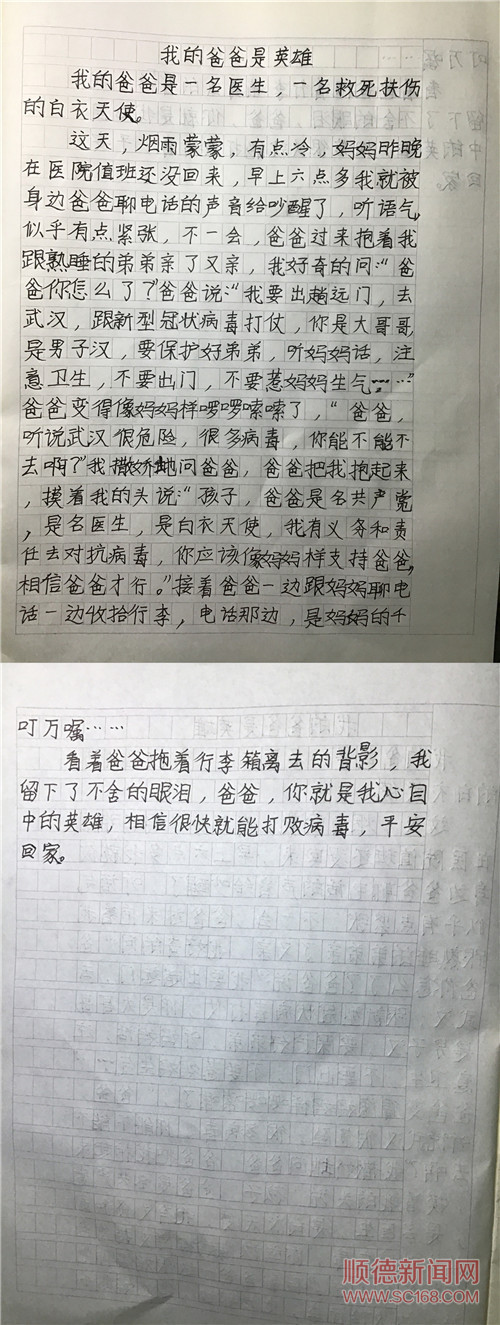 我的爸爸是英雄
我的爸爸是一名医生，一名救死扶伤
的白衣天使。
这天，烟雨蒙蒙，有点冷，妈妈昨晚
在医院值班还没回来，早上六点多我就被
身边爸爸聊电话的声音给吵醒了，听语气，
似乎有点紧张，不一会，爸爸过来抱着我
跟熟睡的弟弟亲了又亲，我好奇的问：“爸
爸你怎么了？”爸爸说：“我要出趟远门，去
武汉，跟新型冠状病毒打仗，你是大哥哥
是男子汉，要保护好弟弟，听妈妈话，注
意卫生，不要出门，不要惹妈妈生气……”
爸爸变得像妈妈样啰啰嗦嗦了，“爸爸，
听说武汉很危险，很多病毒，你能不能不
去啊？”我撒娇地问爸爸，爸爸把我抱起来
，摸着我的头说：“孩子，爸爸是名共产党
，是名医生，是白衣天使，我有义务和责
任去对抗病毒，你应该像妈妈样支持爸爸，
相信爸爸才行。”接着爸爸一边跟妈妈聊电
话一边收拾行李，电话那边，是妈妈的千
叮万嘱……
看着爸爸拖着行李箱离去的背影，我
留下了不舍的眼泪，爸爸，你就是我心目
中的英雄，相信很快就能打败病毒，平安
回家。
顺德新闻网
www.SC168.com